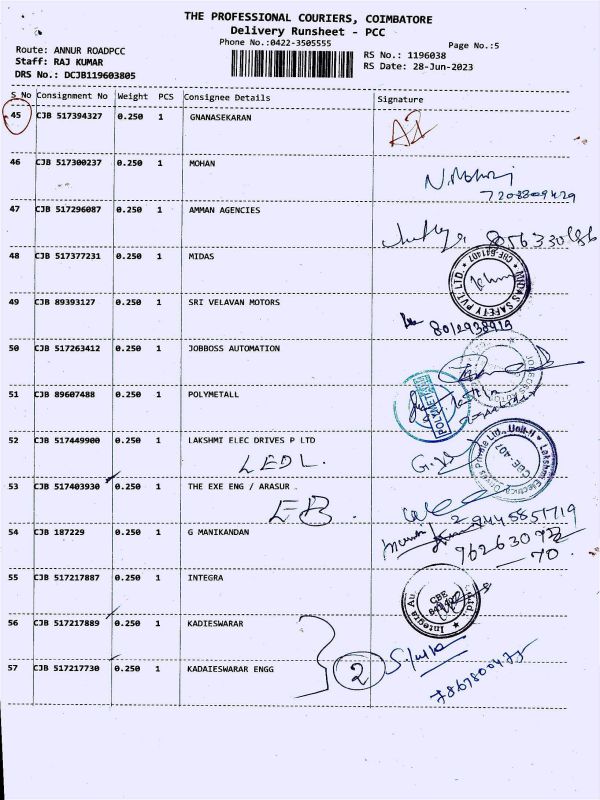 THE PROFESSIONAL COURIERS, COIMBATORE
Delivery Runsheet - PCC
Phone No.:0422-3505555
Page No.:5
Route: ANNUR ROADPCC
Staff: RAJ KUMAR
DRS No.: DCJB119603805
RS No.: 1196038
RS Date: 28-Jun-2023
S_No Consignment No Weight PCS Consignee Details Signature
45 CJB 517394327 0.250 1 GNANASEKARAN
46 CJB 517300237 0.250 1 MOHAN
7208809429
47 CJB 517296087 0.250 1 AMMAN AGENCIES
48 CJB 517377231 0.250 1 MIDAS
MIDAS SAFETY PVT. LTD. * CJE-641407 *
49 CJB 89393127 0.250 1 SRI VELAVAN MOTORS
50 CJB 517263412 0.250 1 JOBBOSS AUTOMATION
51 CJB 89607488 0.250 1 POLYMETALL
52 CJB 517449900 0.250 1 LAKSHMI ELEC DRIVES P LTD
LEDL.
Lakshmi Electrical Drives Private Ltd., Unit-II
CBE - 407
53 CJB 517403930 0.250 1 THE EXE ENG / ARASUR
EB.
54 CJB 187229 0.250 1 G MANIKANDAN
55 CJB 517217887 0.250 1 INTEGRA
56 CJB 517217889 0.250 1 KADIESWARAR
2
57 CJB 517217730 0.250 1 KADAIESWARAR ENGG